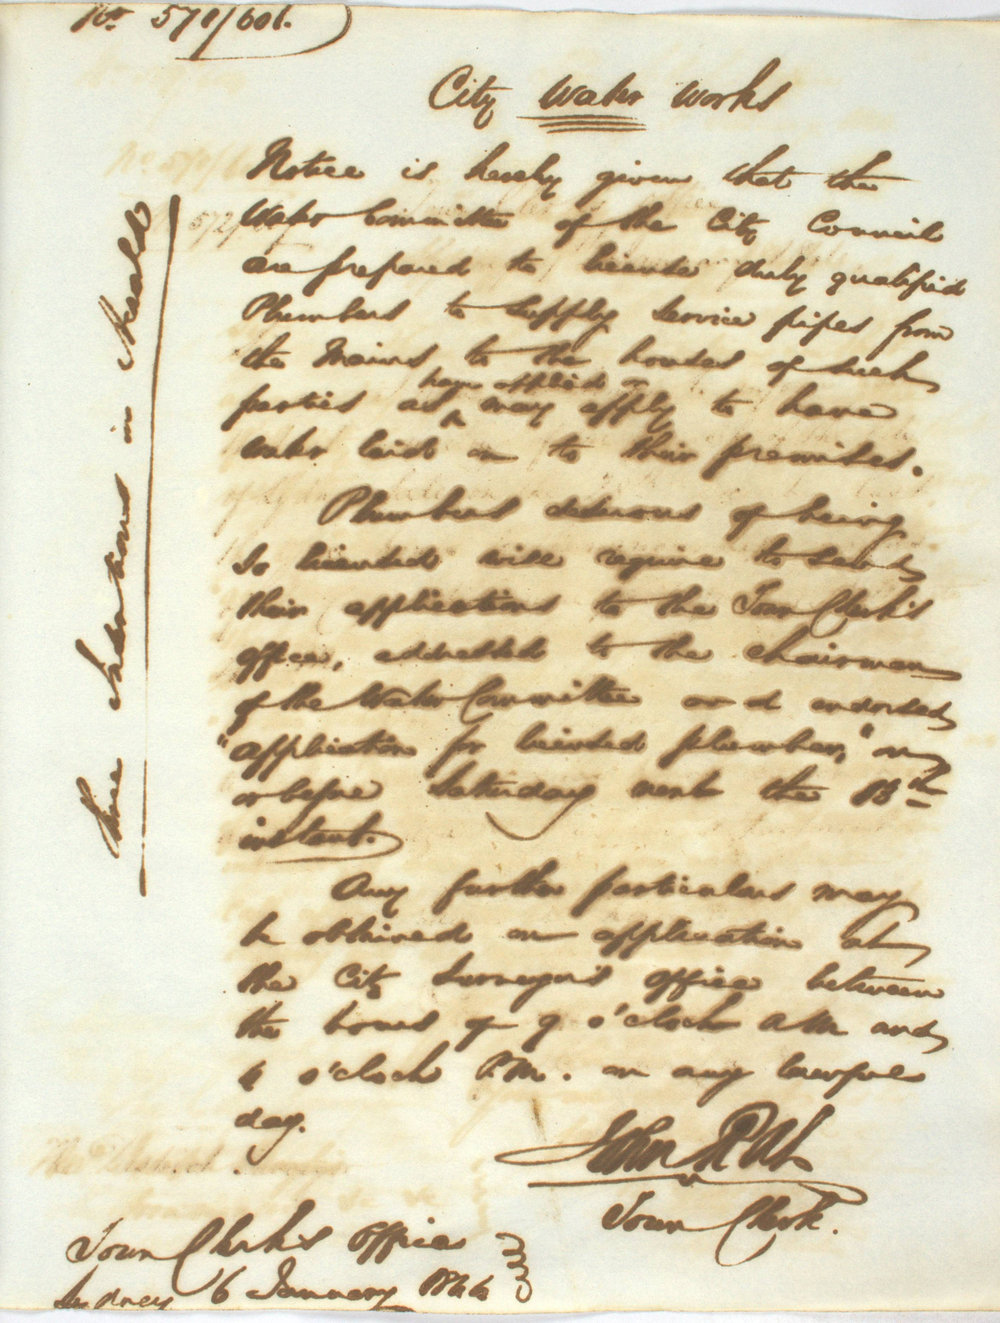 No. 570/601.
City Water Works
Notice is hereby given that the
Water Committee of the City Council
are prepared to license duly qualified
Plumbers to supply service pipes from
the Mains to the houses of such
have applied or
parties as ^ may apply to have
water laid on to their premises.
Plumbers desirous of being
so licensed will require to send
their applications to the Town Clerk's
office, addressed to the Chairman
of the Water Committee and endorsed
"application for licensed plumber," on
or before Saturday next the 13th
instant.
Any further particulars may
be obtained on application at
the City Surveyor's office between
the hours of 9 o'clock A.M. and
4 o'clock P.M. on any lawful
day.
John Rae
Town Clerk.
Town Clerk's Office
Sydney 6 January 1844
three Insertions in Herald